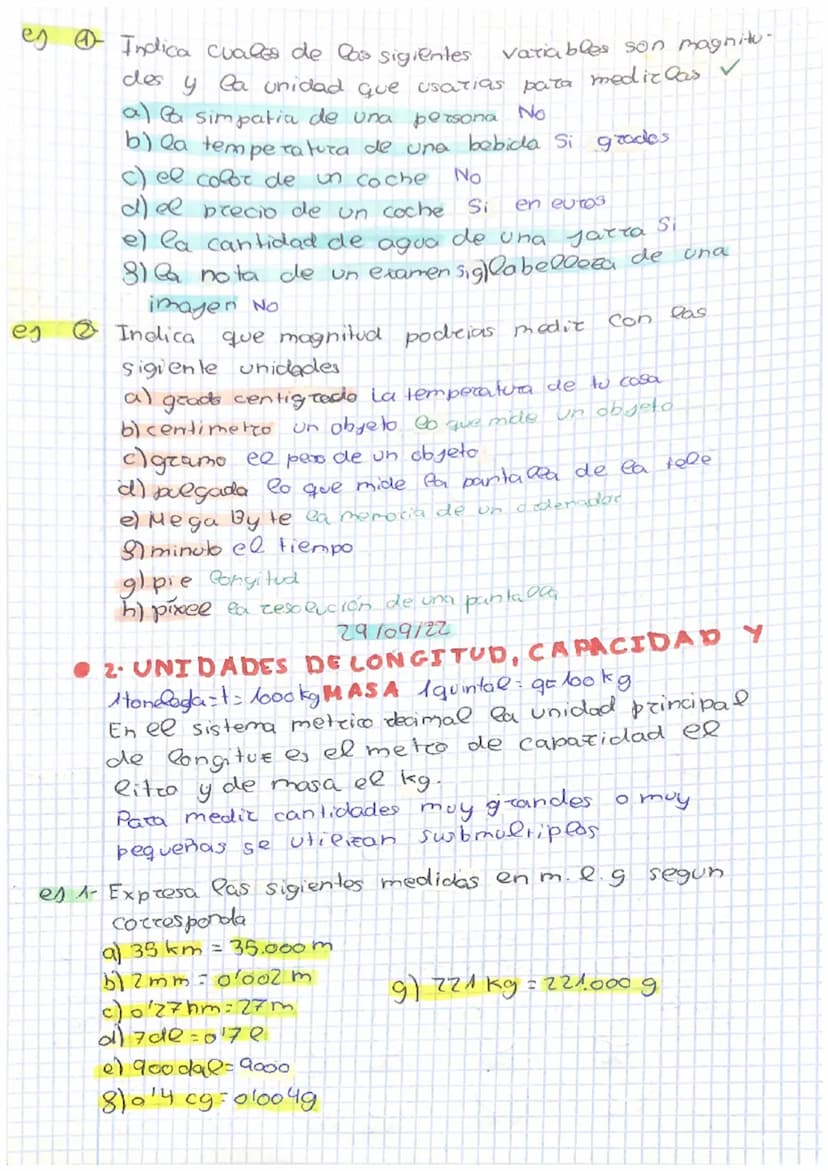 ej ① Indica cuales de las sigientes variables son magnitu-
des y la unidad que usarias para medirlas ✓
a) la simpatia de una persona No
b) la temperatura de una bebida Si grados
c) el color de un coche No
d) el precio de un coche Si en euros
e) la cantidad de agua de una jarra Si
f) la nota de un examen si g) la belleza de una
imagen No
ej ② Indica que magnitud podrias medir con las
sigiente unidades
a) grado centigrado La temperatura de tu casa
b) centimetro un objeto lo que mide un objeto
c) gramo el peso de un objeto
d) pulgada lo que mide la pantalla de la tele
e) Mega Byte la memoria de un ordenador
f) minuto el tiempo
g) pie longitud
h) píxel la resolución de una pantalla
29/09/22
• 2. UNIDADES DE LONGITUD, CAPACIDAD Y
1 tonelada = t = 1000 kg MASA 1 quintal = q = 100 kg
En el sistema metrico decimal la unidad principal
de longitud es el metro de capacidad el
litro y de masa el kg.
Para medir cantidades muy grandes o muy
pequeñas se utilizan submultiplos
ej 1- Expresa las sigientes medidas en m. l. g segun
corresponda
a) 35 km = 35.000 m
b) 2 mm = 0'002 m
c) 0'27 hm = 27 m
d) 7 dl = 0'7 l
e) 900 dal = 9000
f) 0'4 cg = 0'004g
g) 221 kg = 221.000 g